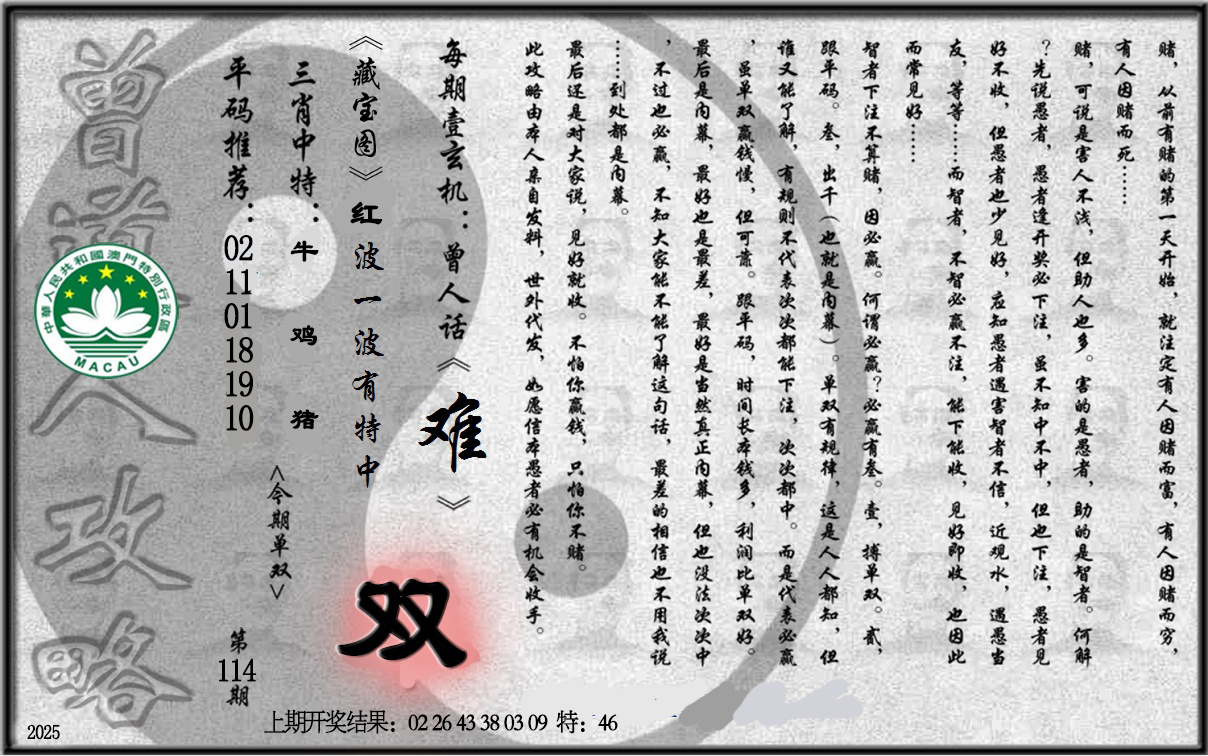 赌，从前有赌的第一天开始，就注定有人因赌而富，有人因赌而穷，
有人因赌而死……
赌，可说是害人不浅，但助人也多。害的是愚者，助的是智者。何解
？先说愚者，愚者逢开奖必下注，虽不知中不中，但也下注，愚者见
好不收，但愚者也少见好，应知愚者遇害智者不信，近观水，遇愚当
友，等等……而智者，不智必赢不注，能下能收，见好即收，也因此
而常见好……
智者下注不算赌，因必赢。何谓必赢？必赢有叁。壹，搏单双。贰，
跟平码。叁，出千（也就是内幕）。单双有规律，这是人人都知，但
谁又能了解，有规则不代表次次都能下注，次次都中。而是代表必赢
，虽单双赢钱慢，但可靠。跟平码，时间长本钱多，利润比单双好。
最后是内幕，最好也是最差，最好是当然真正内幕，但也没法次次中
，不过也必赢，不知大家能不能了解这句话，最差的相信也不用我说
……到处都是内幕。
最后还是对大家说，见好就收。不怕你赢钱，只怕你不赌。
此攻略由本人亲自发料，世外代发，如愿信本愚者必有机会收手。
每期壹玄机：曾人话《难》
《藏宝图》红波一波有特中
双
三肖中特：牛 鸡 猪
<今期单双>
平码推荐：02 11 01 18 19 10
第114期
曾道人攻略
中華人民共和國澳門特別行政區
MACAU
上期开奖结果：02 26 43 38 03 09 特：46
2025